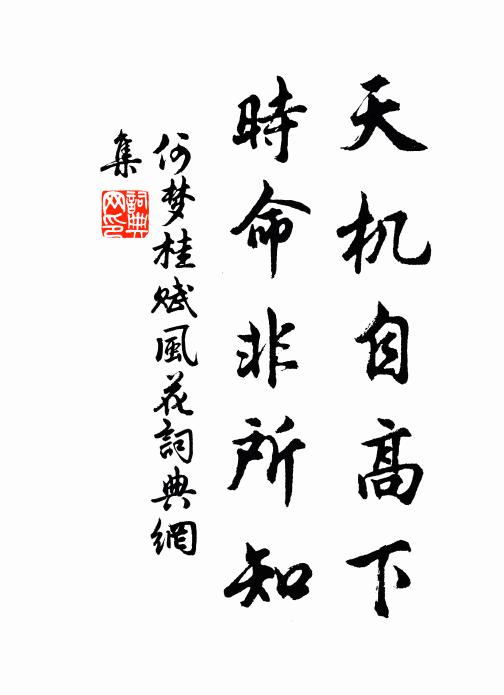 天机自高下
時命非所知
何梦桂赋風花詞典網
集
詞典
网印